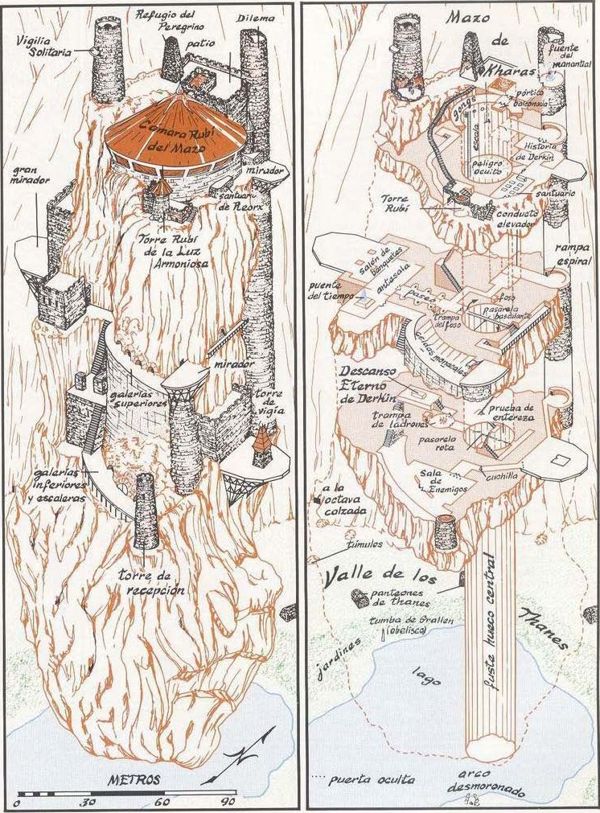 Vigilia
Solitaria
Refugio del
Peregrino
patio
Dilema
Cámara Rubí
del Mazo
gran
mirador
mirador
santuario
de Reorx
Torre Rubí
de la Luz
Armoniosa
mirador
galerías
superiores
torre
de
vigía
galerías
inferiores
y escaleras
torre de
recepción
METROS
0 30 60 90
N
Mazo
de
Kharas
fuente
del
manantial
pórtico
balconada
gongs
escala
Historia
de Derkin
peligro
oculto
santuario
Torre
Rubí
conducto
elevador
rampa
espiral
salón de
banquetes
antesala
puente
del tiempo
pared
foso
pasarela
basculante
trampa
del foso
celdas monacales
Descanso
Eterno
de Derkin
prueba de
entereza
trampa
de ladrones
pasarela
rota
cuchilla
Sala
de
Enemigos
a la
octava
calzada
túmulos
Valle de los
Thanes
panteones
de thanes
tumba de Grallen
(obelisco)
jardines
lago
fuste hueco central
.... puerta oculta
arco
desmoronado